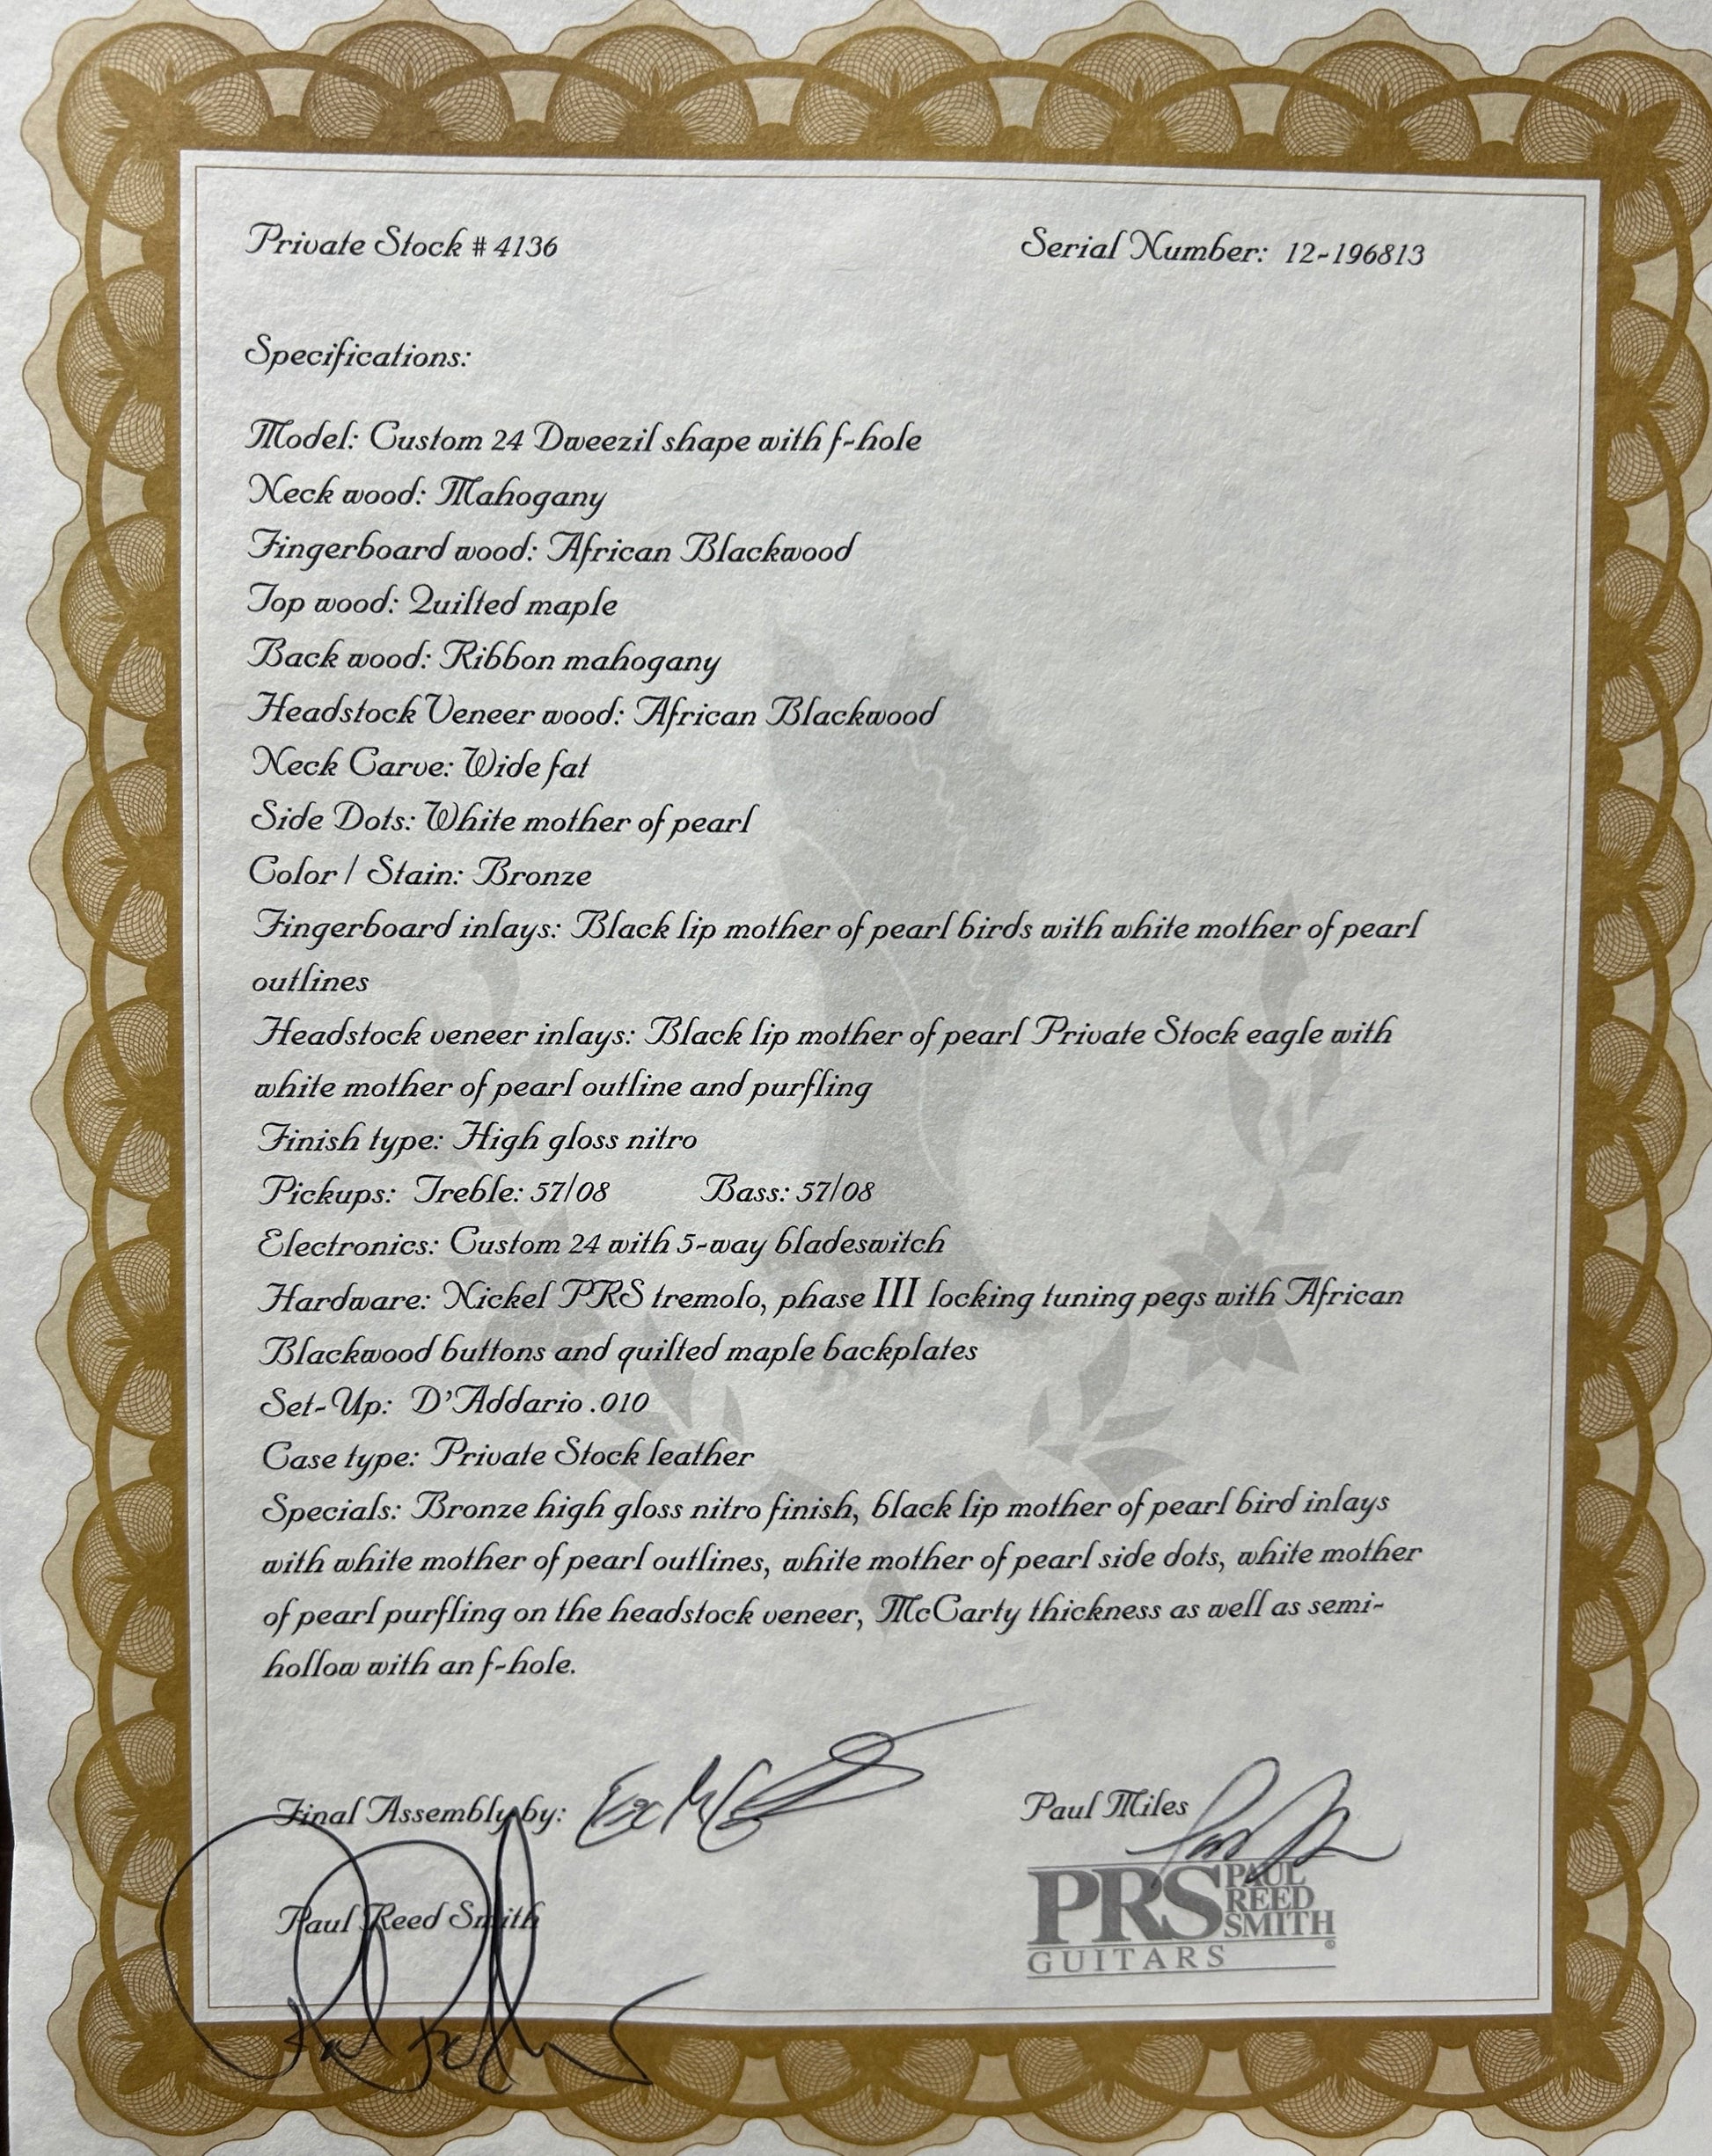 Private Stock # 4136 Serial Number: 12-196813
Specifications:
Model: Custom 24 Dweezil shape with f-hole
Neck wood: Mahogany
Fingerboard wood: African Blackwood
Top wood: Quilted maple
Back wood: Ribbon mahogany
Headstock Veneer wood: African Blackwood
Neck Carve: Wide fat
Side Dots: White mother of pearl
Color / Stain: Bronze
Fingerboard inlays: Black lip mother of pearl birds with white mother of pearl
outlines
Headstock veneer inlays: Black lip mother of pearl Private Stock eagle with
white mother of pearl outline and purfling
Finish type: High gloss nitro
Pickups: Treble: 57/08 Bass: 57/08
Electronics: Custom 24 with 5-way bladeswitch
Hardware: Nickel PRS tremolo, phase III locking tuning pegs with African
Blackwood buttons and quilted maple backplates
Set-Up: D'Addario .010
Case type: Private Stock leather
Specials: Bronze high gloss nitro finish, black lip mother of pearl bird inlays
with white mother of pearl outlines, white mother of pearl side dots, white mother
of pearl purfling on the headstock veneer, McCarty thickness as well as semi-
hollow with an f-hole.
Final Assembly by: Paul Miles
Paul Reed Smith
PRS PAUL
REED
SMITH
GUITARS